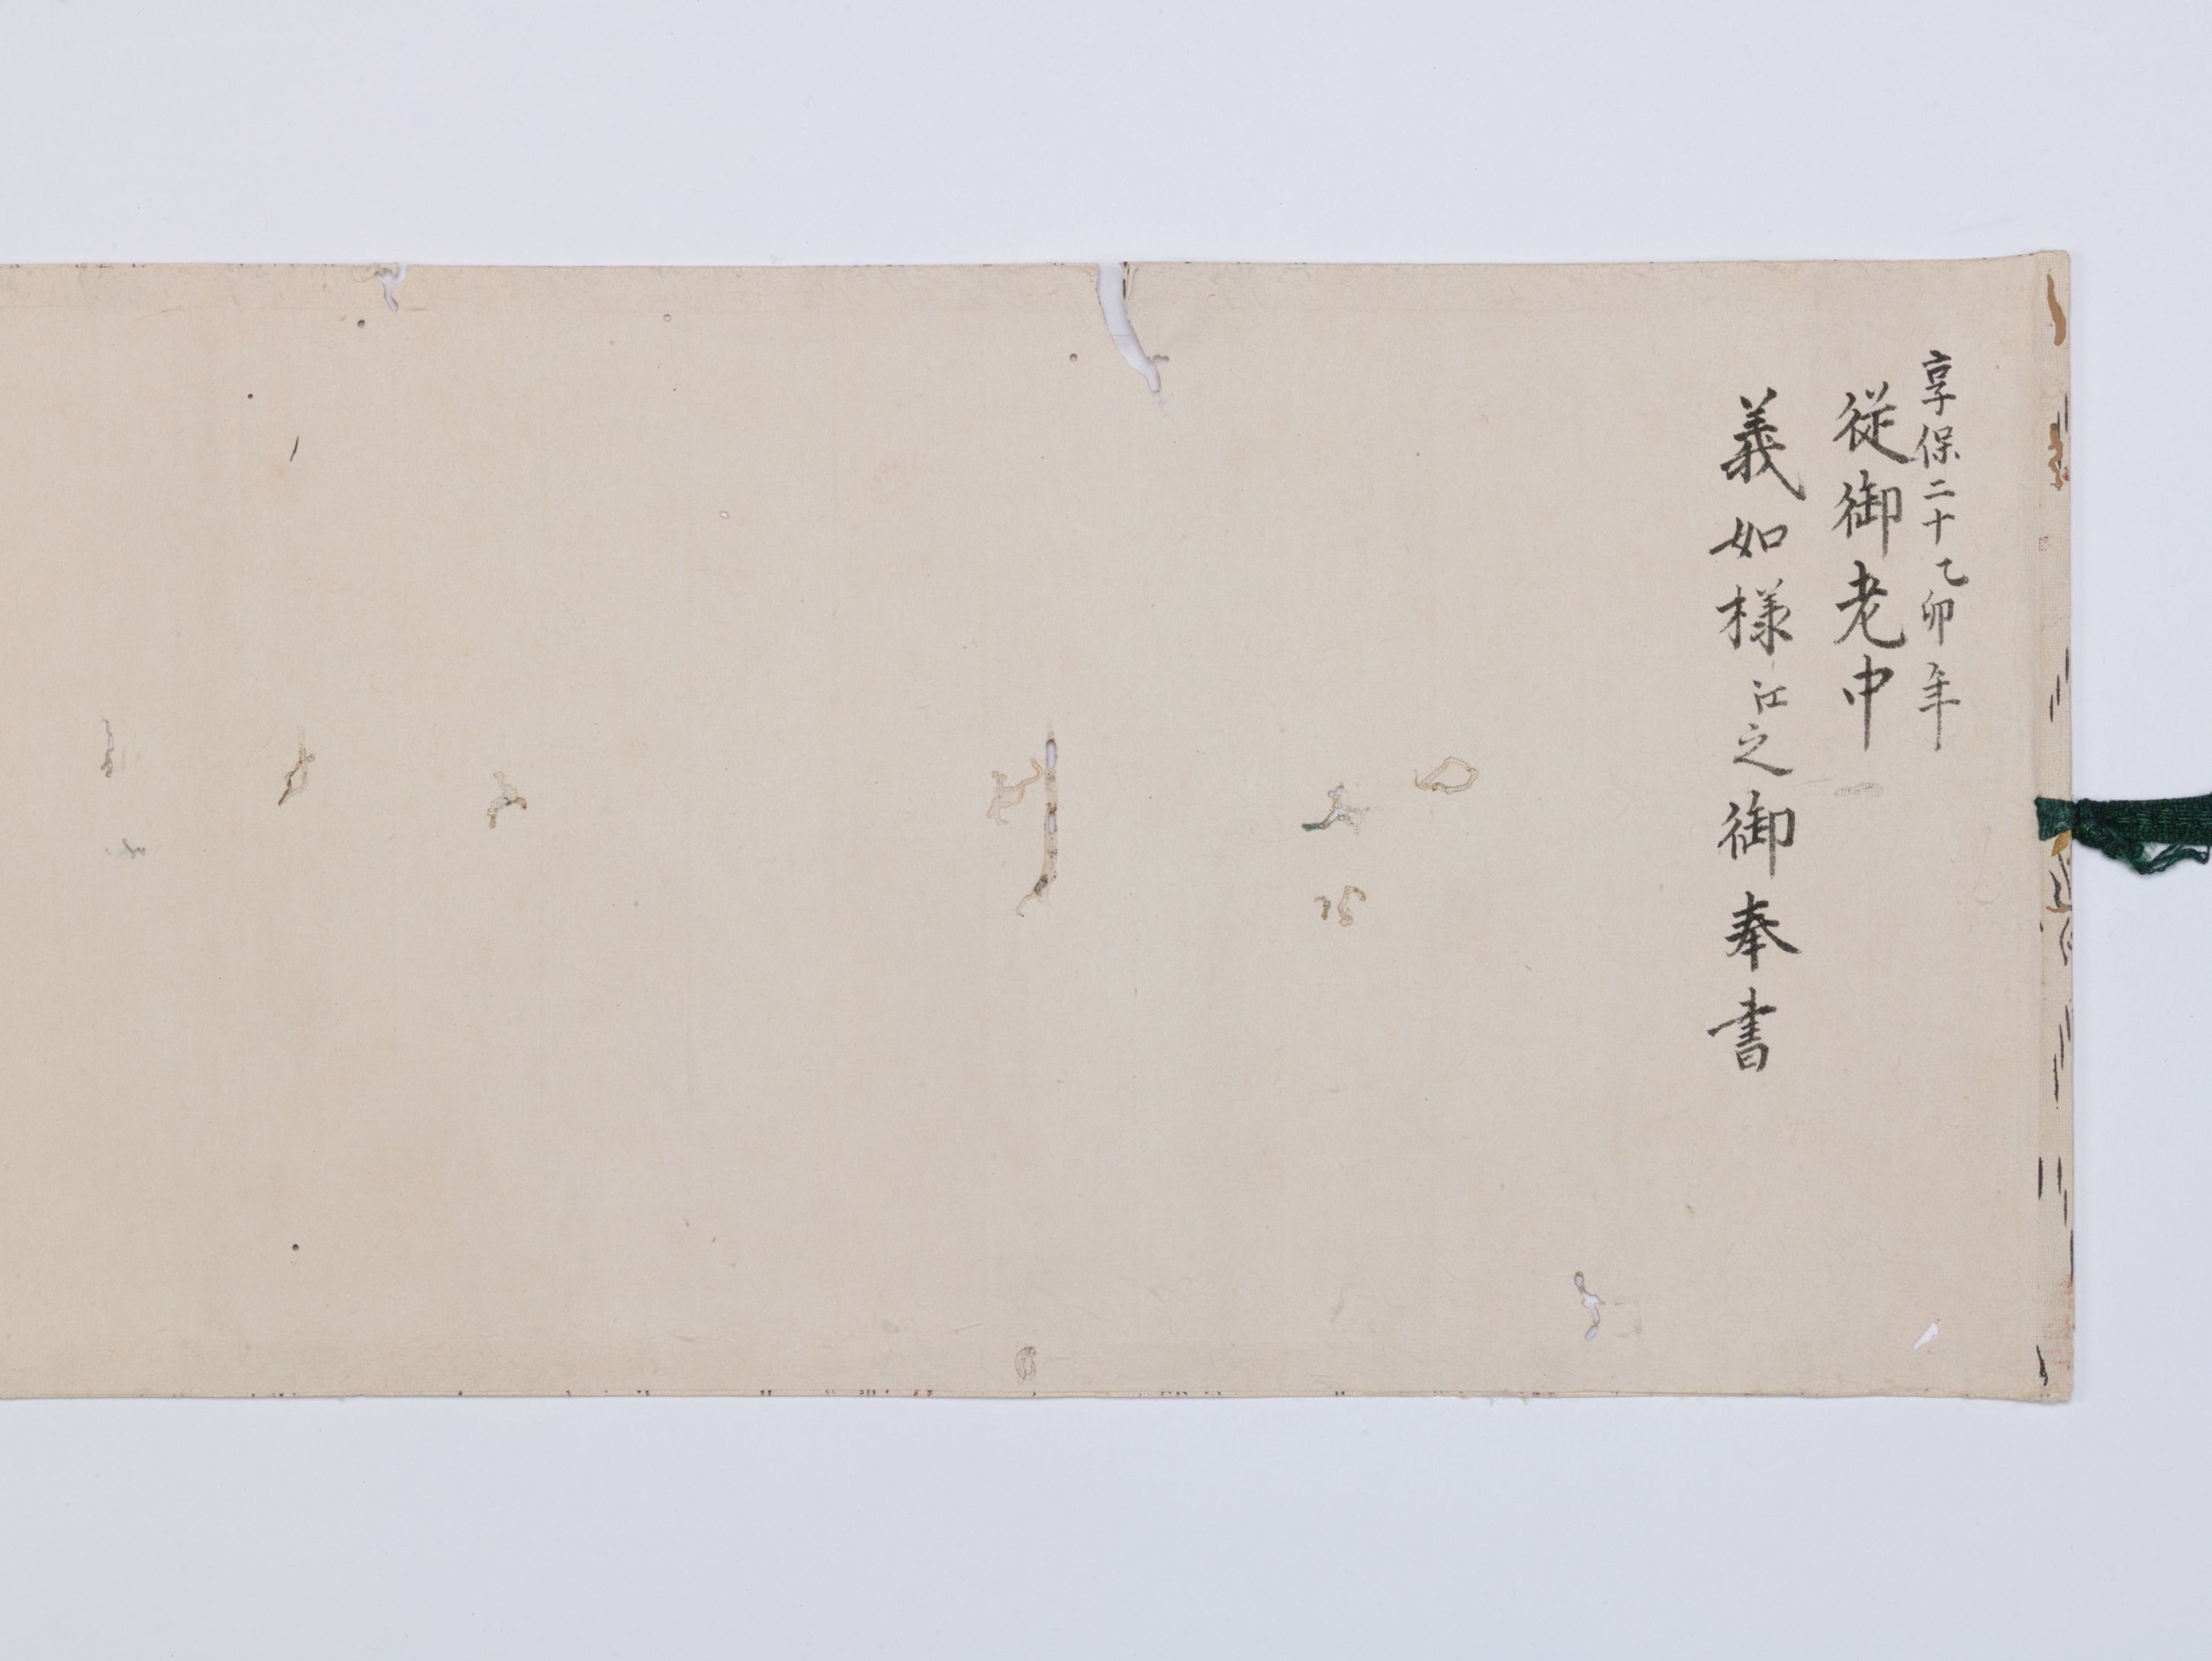 享保二十乙卯年
従御老中
義如様江之御奉書